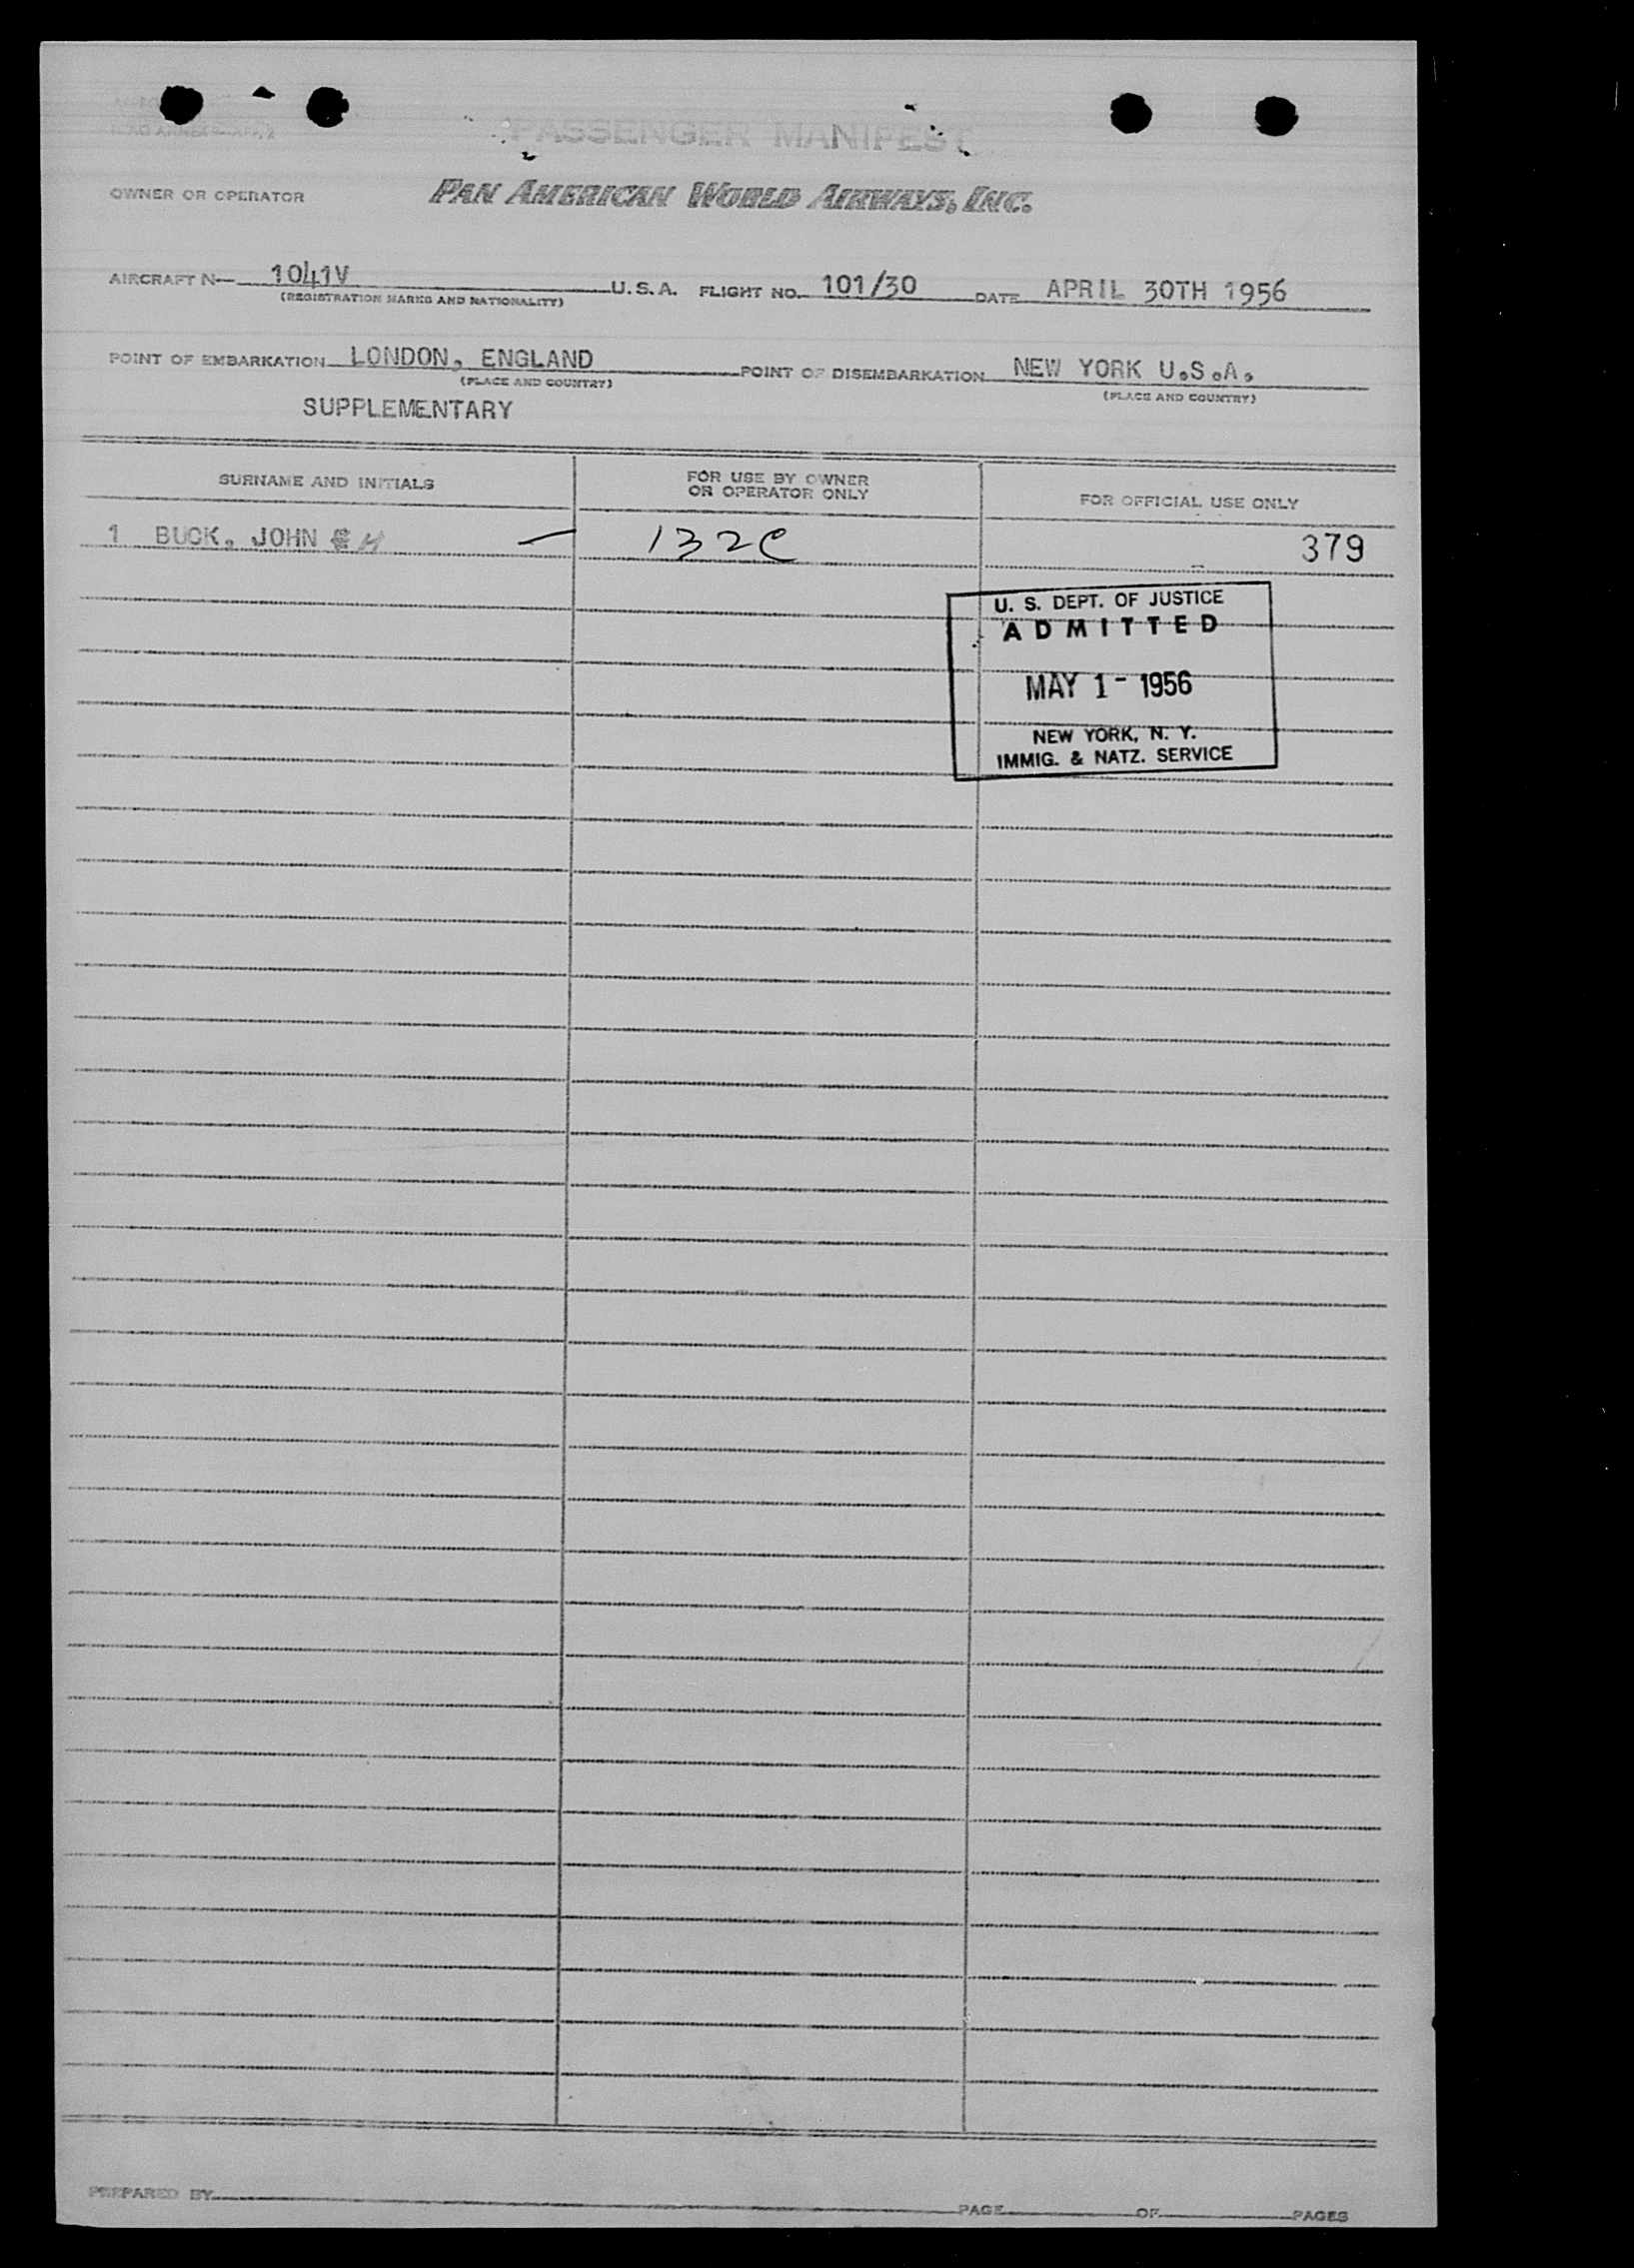 PASSENGER MANIFEST
OWNER OR OPERATOR PAN AMERICAN WORLD AIRWAYS, INC.
AIRCRAFT N— 1041V U.S.A. FLIGHT NO. 101/30 DATE APRIL 30TH 1956
(REGISTRATION MARKS AND NATIONALITY)
POINT OF EMBARKATION LONDON, ENGLAND POINT OF DISEMBARKATION NEW YORK U.S.A.
(PLACE AND COUNTRY) (PLACE AND COUNTRY)
SUPPLEMENTARY
SURNAME AND INITIALS FOR USE BY OWNER OR OPERATOR ONLY FOR OFFICIAL USE ONLY
1 BUCK, JOHN H — 132C 379
U. S. DEPT. OF JUSTICE
ADMITTED
MAY 1 - 1956
NEW YORK, N. Y.
IMMIG. & NATZ. SERVICE
PREPARED BY PAGE OF PAGES